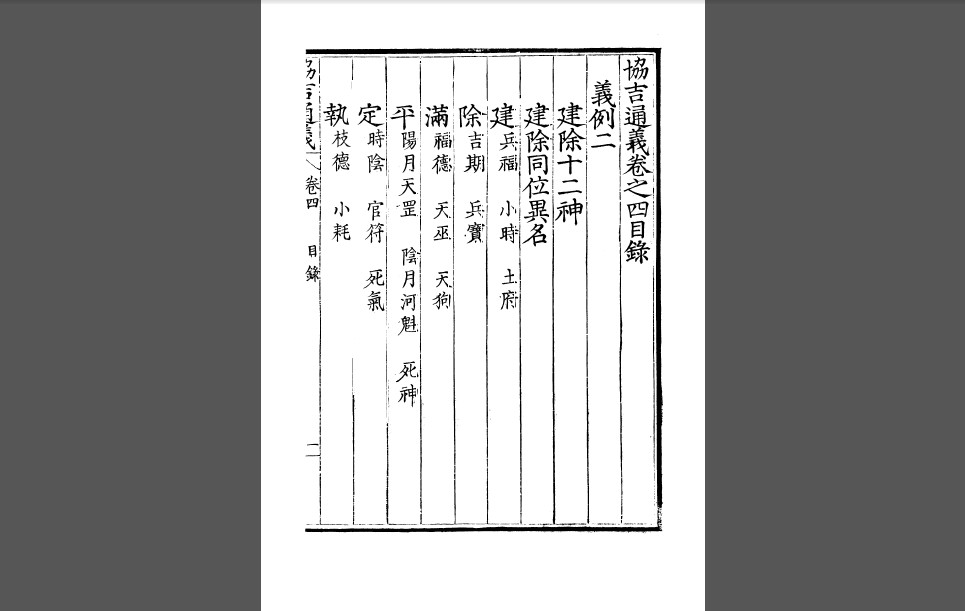 協吉通義卷之四目錄
義例二
建除十二神
建除同位異名
建 兵福 小時 土府
除 吉期 兵寶
滿 福德 天巫 天狗
平 陽月天罡 陰月河魁 死神
定 時陰 官符 死氣
執 枝德 小耗
協吉通義 卷四 目錄 一